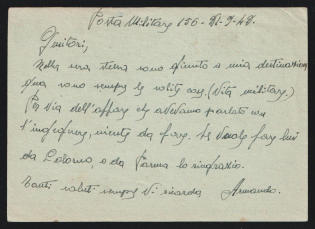 Posta Militare 156 - 21-9-42.
Genitori,
Nella sera stessa sono giunto a mia destinazione
qua sono sempre le solite cose. (Vita militare.)
Per via dell'affare che avevamo parlato con
l'ingegnere, niente da fare. Se vuole fare lui
da Livorno, o da Parma lo ringrazio.
Tanti saluti sempre Vi ricorda Armando.